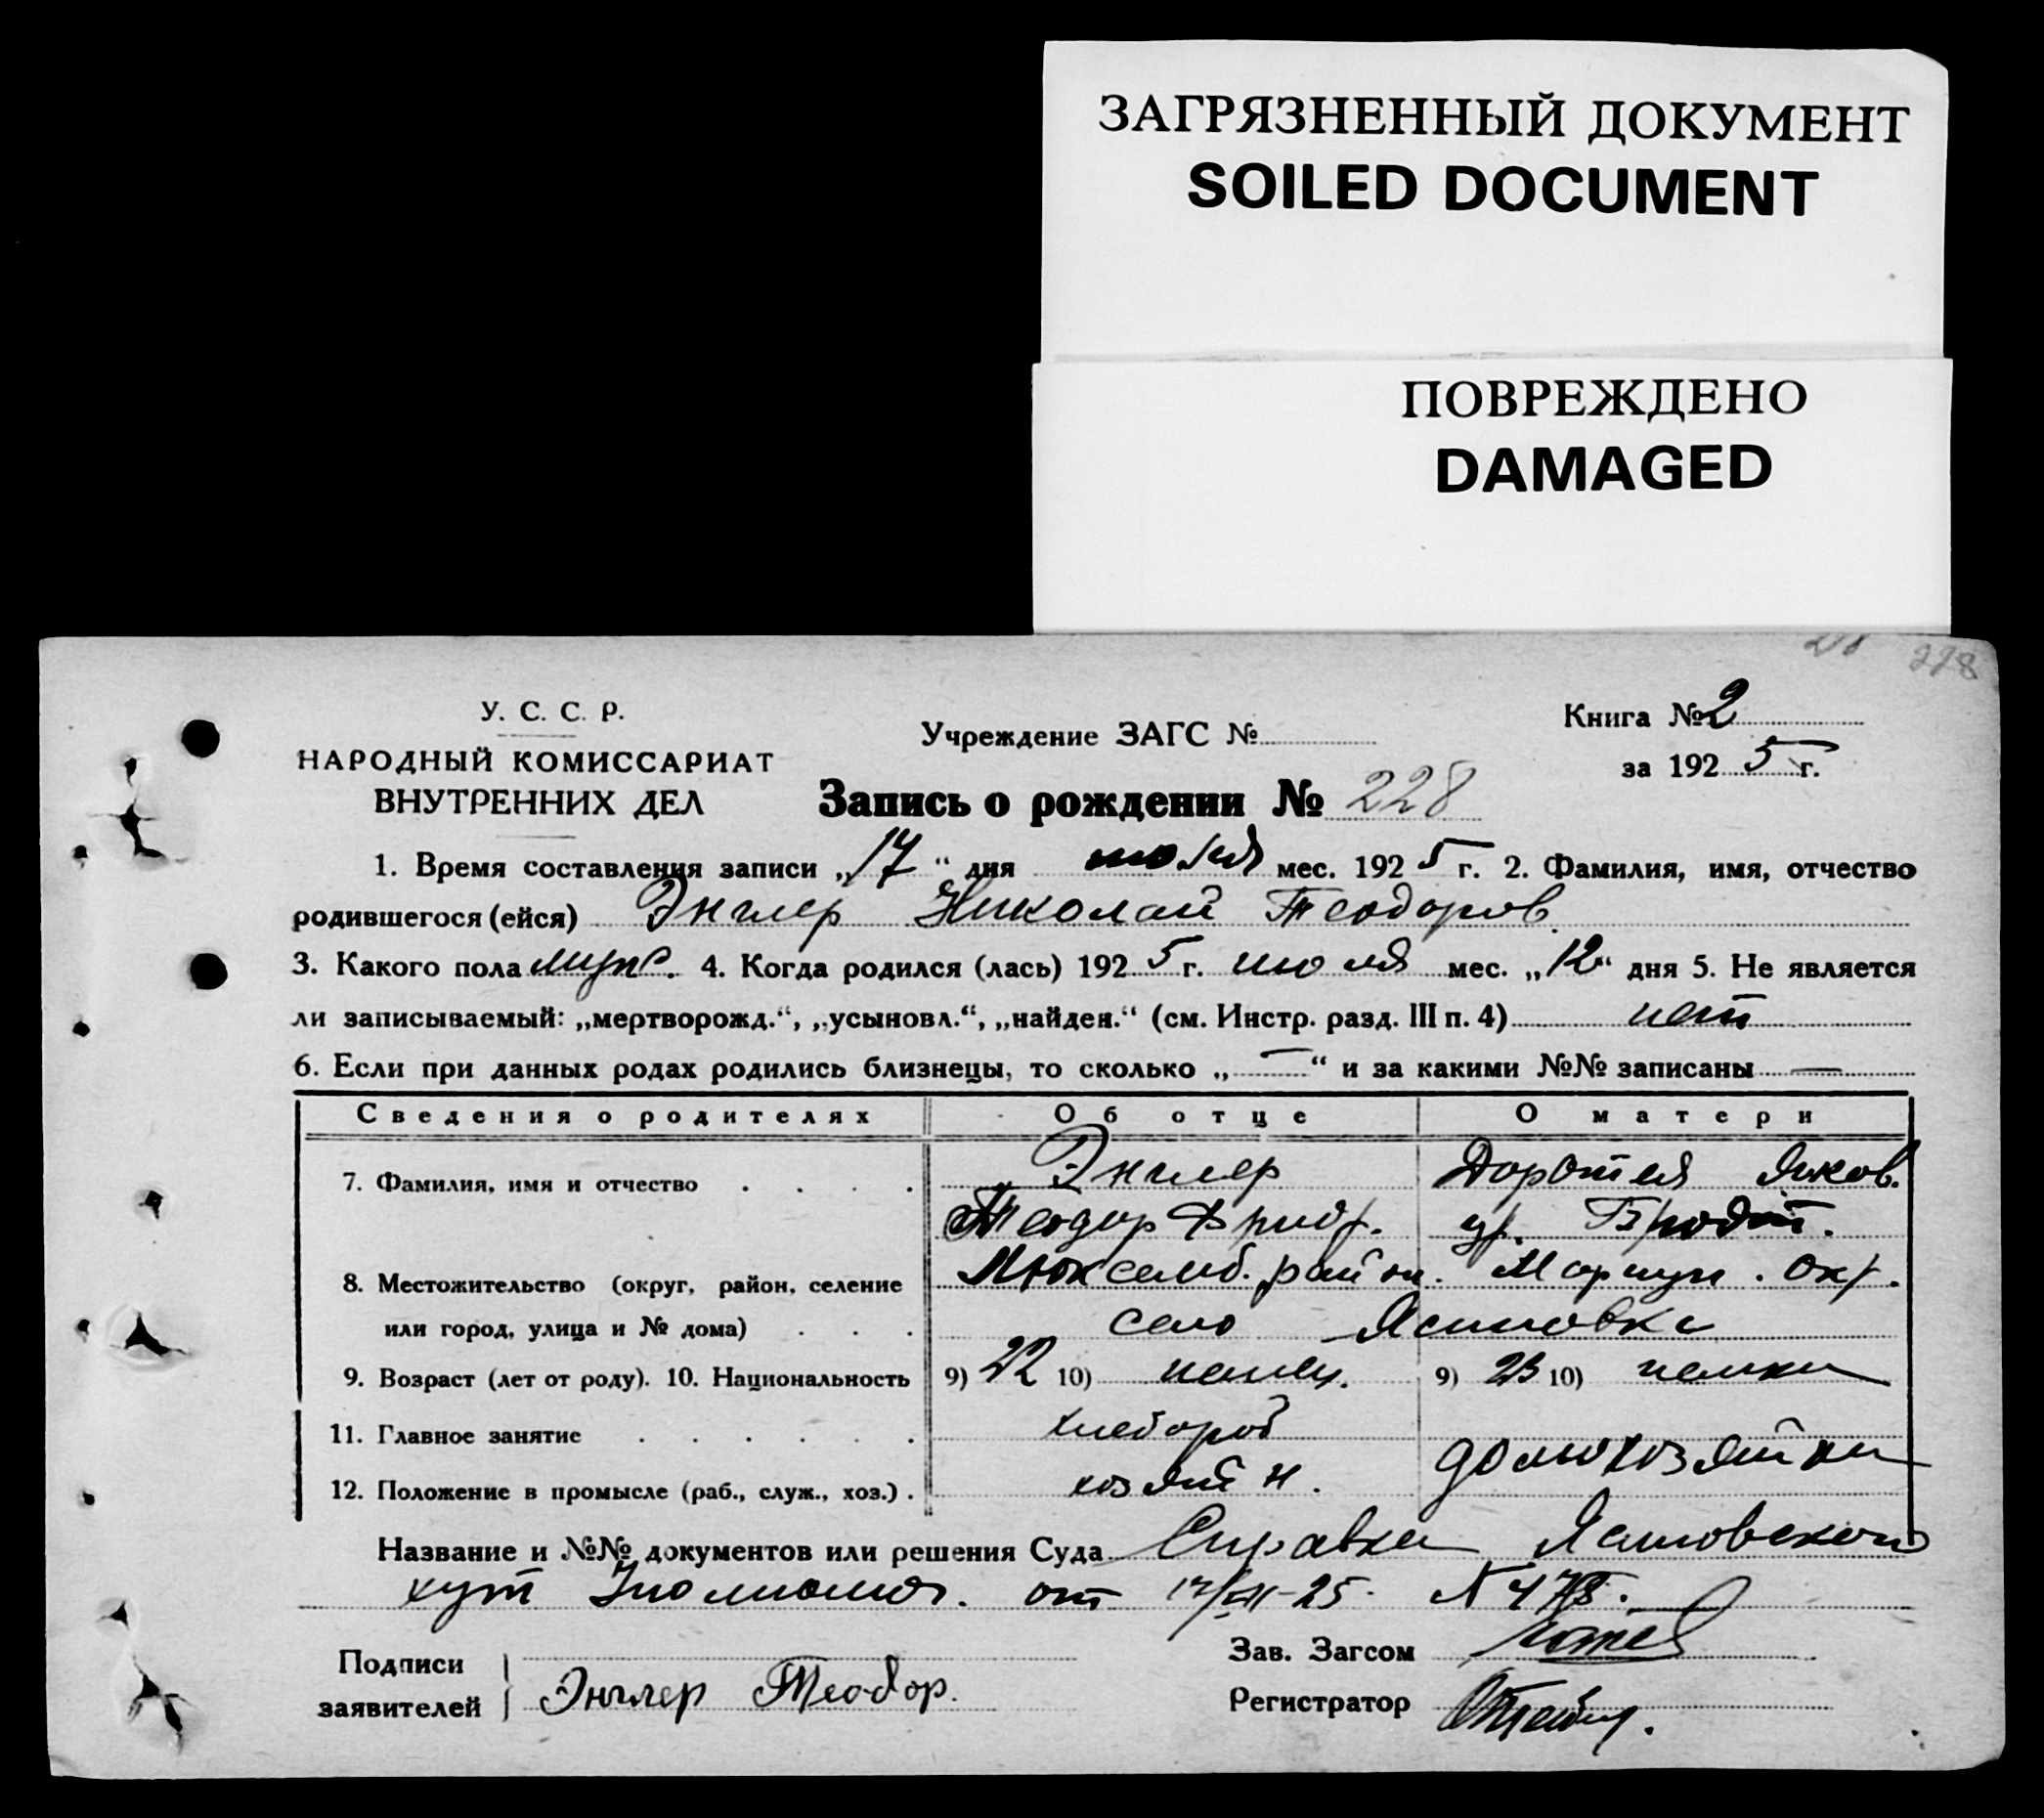 ЗАГРЯЗНЕННЫЙ ДОКУМЕНТ
SOILED DOCUMENT
ПОВРЕЖДЕНО
DAMAGED
228
У. С. С. Р.
НАРОДНЫЙ КОМИССАРИАТ
ВНУТРЕННИХ ДЕЛ
Учреждение ЗАГС №
Книга № 2
за 1925 г.
Запись о рождении № 228
1. Время составления записи „17“ дня июля мес. 1925 г. 2. Фамилия, имя, отчество
родившегося (ейся) Энглер Николай Теодоров.
3. Какого пола муж. 4. Когда родился (лась) 1925 г. июля мес. „12“ дня 5. Не является
ли записываемый: „мертворожд.“, „усыновл.“, „найден.“ (см. Инстр. разд. III п. 4) нет
6. Если при данных родах родились близнецы, то сколько „—“ и за какими №№ записаны —
Сведения о родителях Об отце О матери
7. Фамилия, имя и отчество Энглер Доротея Яков.
Теодор Фридр. ур.
8. Местожительство (округ, район, селение Люксемб. район. Мариуп. окр.
или город, улица и № дома) село Ясиновка
9. Возраст (лет от роду). 10. Национальность 9) 22 10) немец. 9) 23 10) немка
11. Главное занятие хлебороб
12. Положение в промысле (раб., служ., хоз.) хозяин. домохозяйка
Название и №№ документов или решения Суда Справка
от 17/VII-25. N
Подписи
заявителей Энглер Теодор.
Зав. Загсом
Регистратор